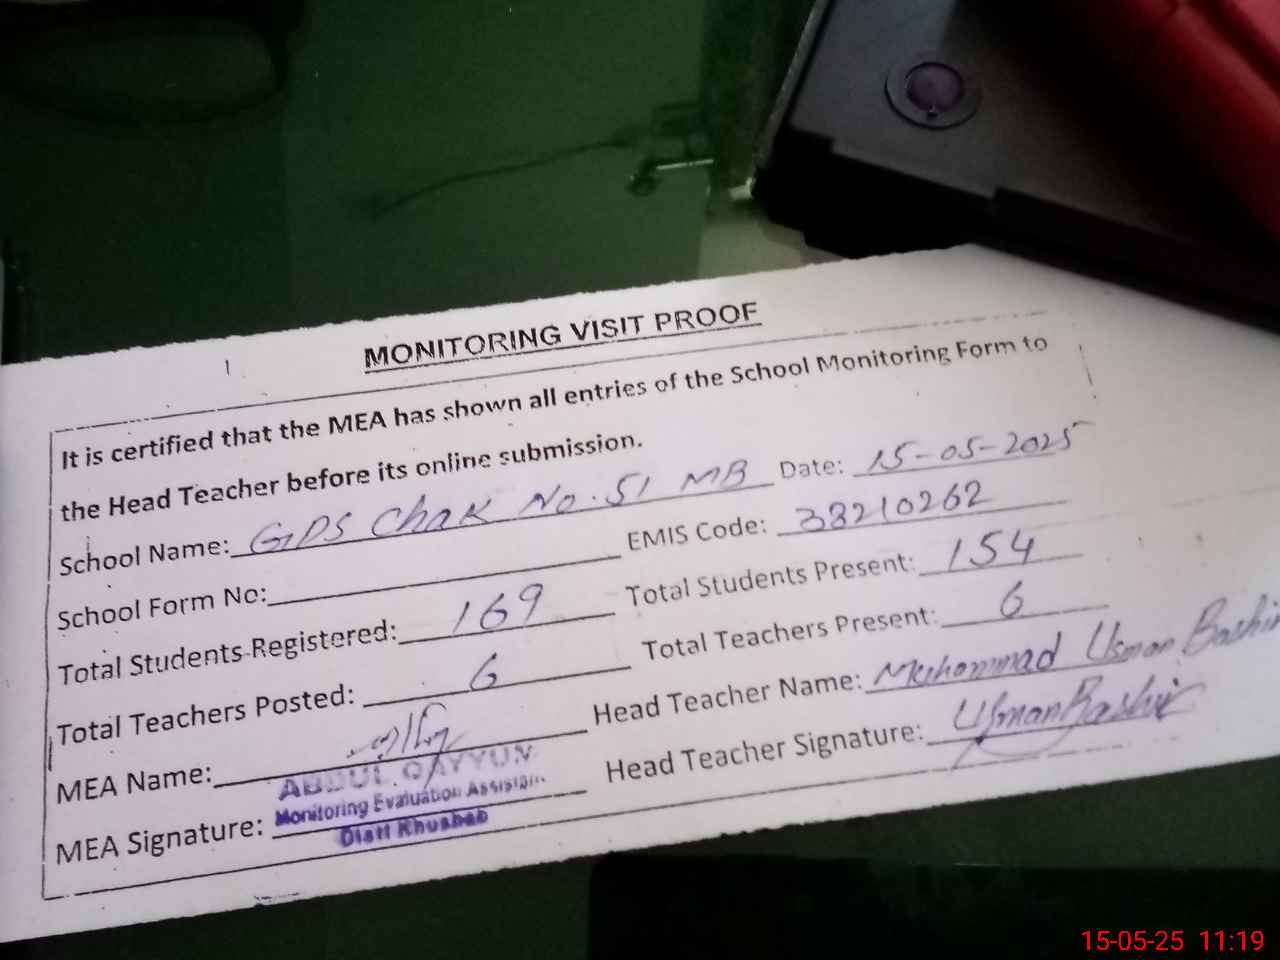 MONITORING VISIT PROOF
It is certified that the MEA has shown all entries of the School Monitoring Form to
the Head Teacher before its online submission.
School Name: GPS Chak No. 51 MB Date: 15-05-2025
School Form No: EMIS Code: 38210262
Total Students Registered: 169 Total Students Present: 154
Total Teachers Posted: 6 Total Teachers Present: 6
MEA Name: Head Teacher Name: Muhammad Usman Bashir
MEA Signature: Head Teacher Signature: Usman Bashir
ABDUL QAYYUM
Monitoring Evaluation Assistant
Distt Khushab
15-05-25 11:19